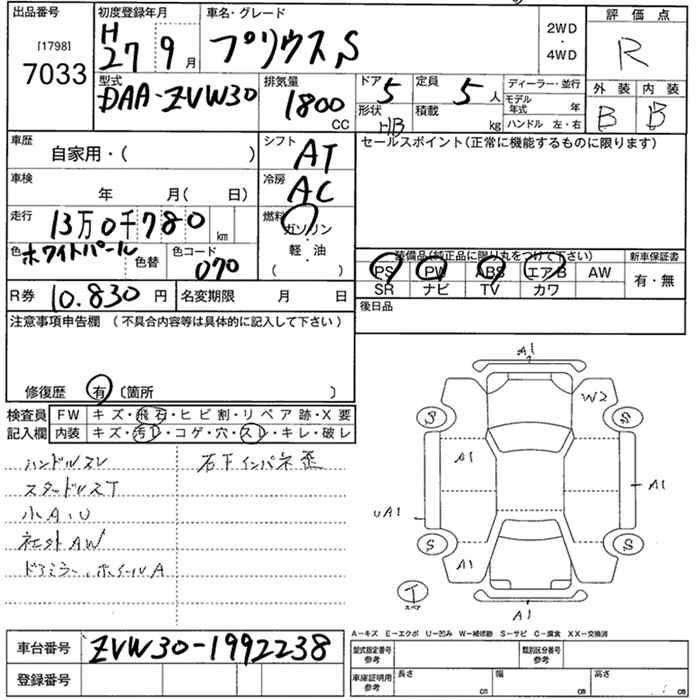 出品番号
[1798]
7033
初度登録年月
H
27 9月
車名・グレード
プリウス,S
2WD
・
4WD
評価点
R
型式
DAA-ZVW30
排気量
1800
CC
ドア 5
形状 HB
定員 5 人
積載 kg
ディーラー・並行
モデル年式 年
ハンドル 左・右
外装 内装
B B
車歴
自家用・( )
シフト
AT
セールスポイント(正常に機能するものに限ります)
車検
年 月( 日)
冷房
AC
走行
13万0千780 km
燃料
ガソリン
・
軽・油
( )
色
ホワイトパール
色替
色コード
070
装備品(純正品に限り丸をつけて下さい)
新車保証書
PS PW ABS エアB AW
SR ナビ TV カワ
有・無
R券 10.830 円
名変期限 月 日
後日品
注意事項申告欄 (不具合内容等は具体的に記入して下さい)
修復歴 有 〔箇所 〕
検査員
記入欄
FW キズ・飛石・ヒビ割・リペア跡・X要
内装 キズ・汚レ・コゲ・穴・スレ・キレ・破レ
ハンドルスレ
スタッドルスT
小A,U
社外AW
ドアミラー,ホイールA
右下インパネ歪
A1
W2
S
S
A1
A1
UA1
S
S
A1
T
スペア
A1
A-キズ E-エクボ U-凹み W-補修跡 S-サビ C-腐食 XX-交換済
車台番号 ZVW30-1992238
登録番号
型式指定番号
参考
類別区分番号
参考
車庫証明用
参考
長さ cm
幅 cm
高さ cm